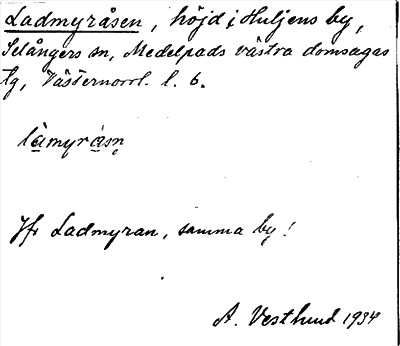 Ladmyråsen, höjd i Huljens by,
Selångers sn, Medelpads västra domsagas
tg, Västernorrl. l. 6.
làmyrásn̥
Jfr Ladmyran, samma by!
A. Vestlund 1934